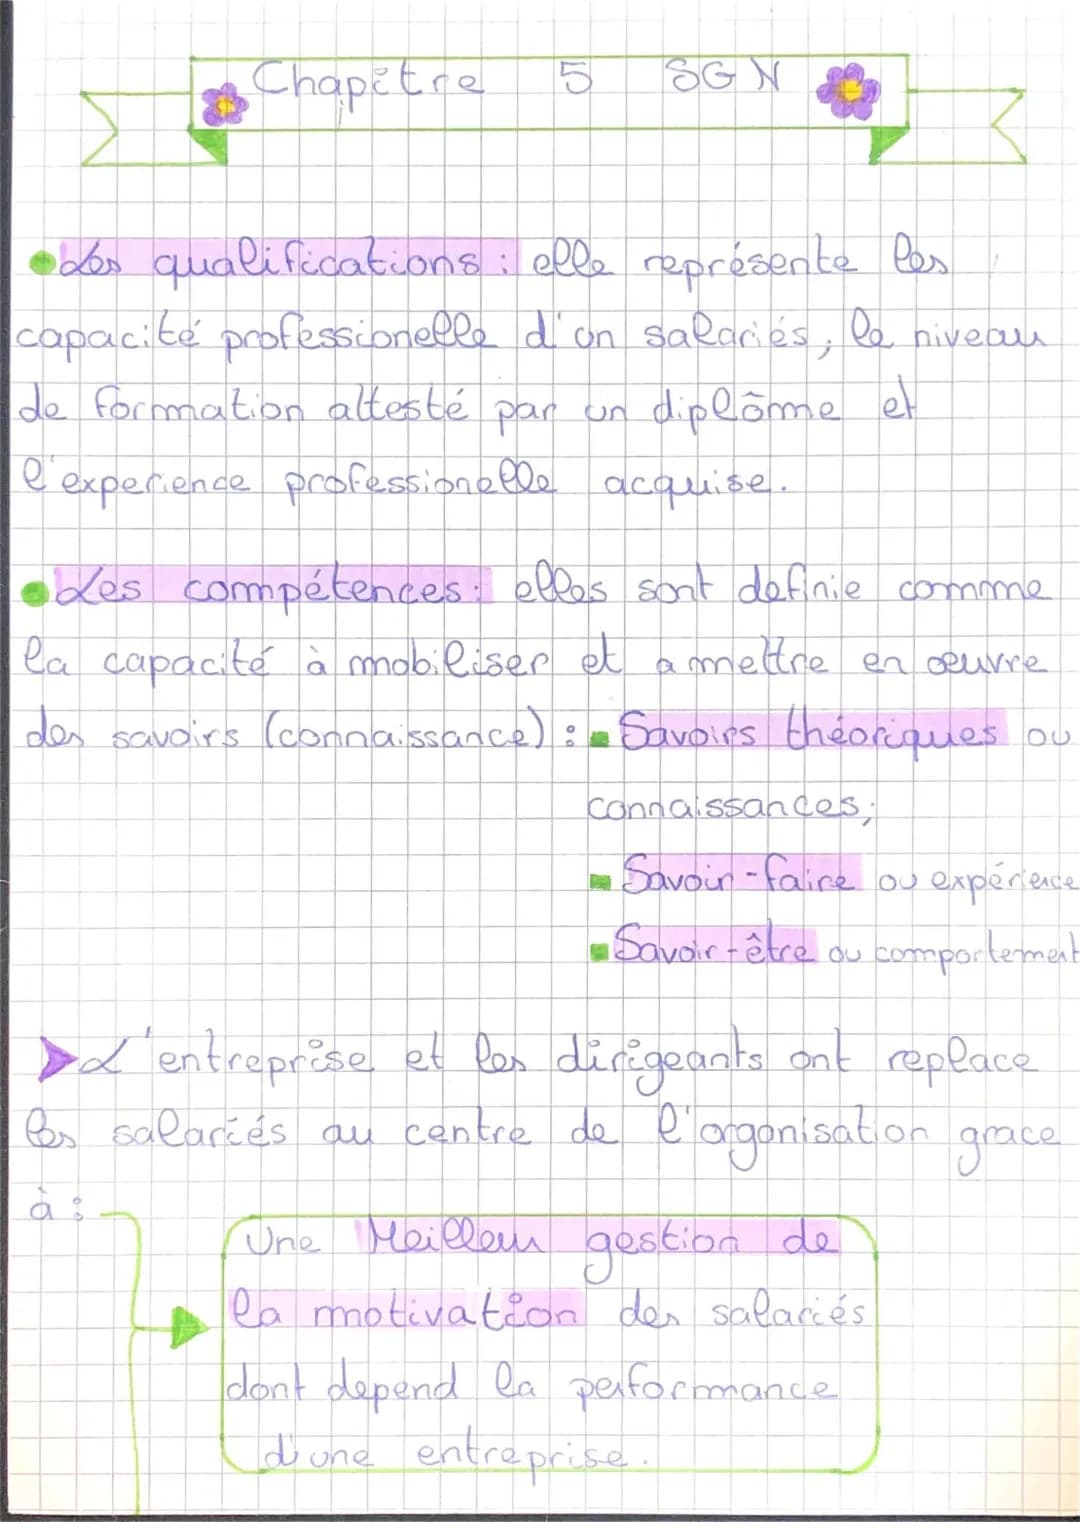 Chapître 5 SGN
Les qualifications : elle représente les
capacité professionelle d'un salariés, le niveau
de formation attesté par un diplôme et
l'experience professionelle acquise.
Les compétences : elles sont definie comme
la capacité à mobiliser et a mettre en oeuvre
des savoirs (connaissance) : Savoirs théoriques ou
connaissances;
Savoir-faire ou expérience
Savoir-être ou comportement
L'entreprise et les dirigeants ont replace
les salariés au centre de l'organisation grace
à :
Une Meilleur gestion de
la motivation des salariés
dont depend la performance
d'une entreprise.